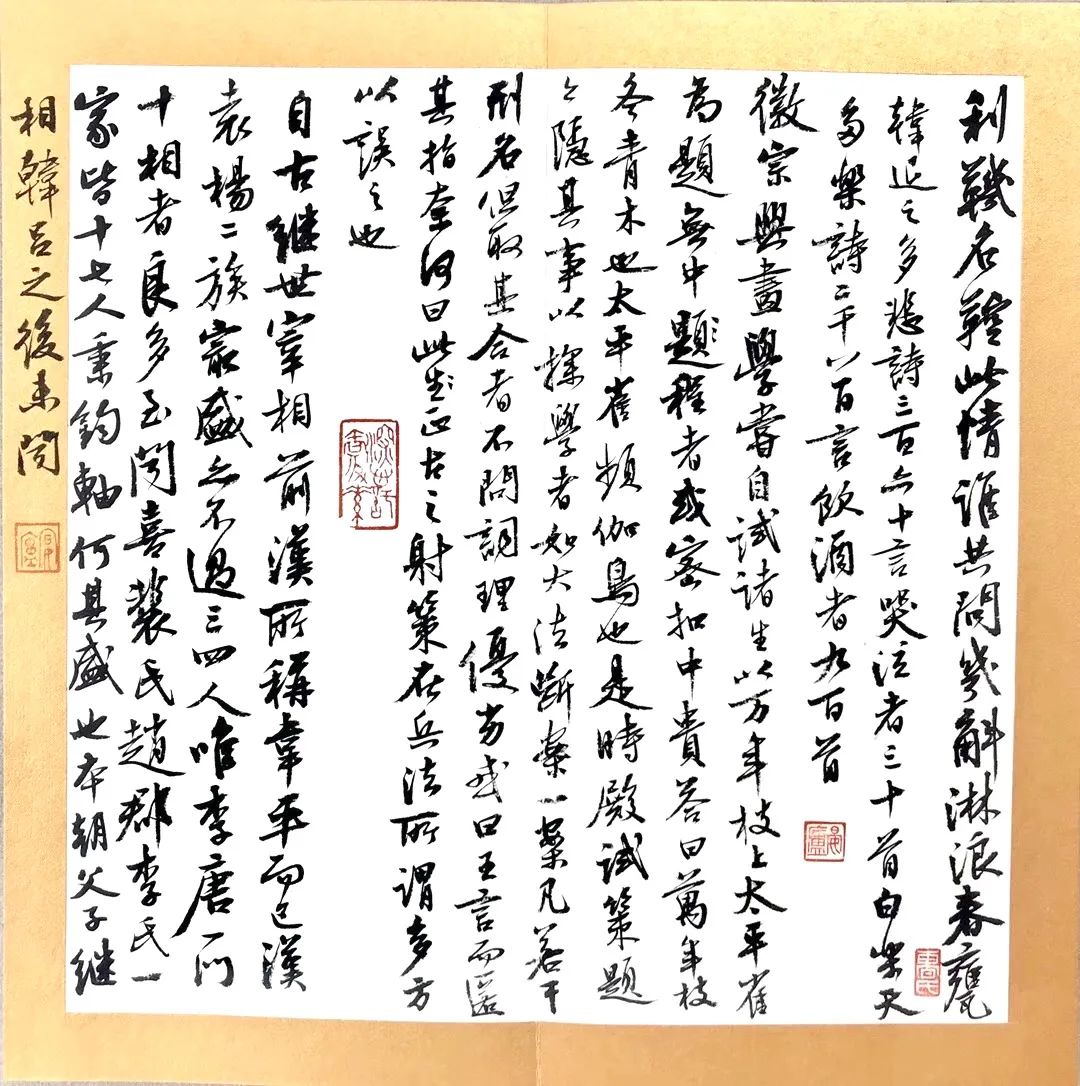 利鞿名鞚此情誰共問幾斛淋浪春甕
韓退之多悲詩三百六十言哭泣者三十首白樂天
多樂詩二千八百言飲酒者九百首
徽宗興畫學嘗自試諸生以万年枝上太平雀
為題無中題程者或密扣中貴答曰萬年枝
冬青木也太平雀頻伽鳥也是時殿試策題
亦隱其事以探學者如大法斷案一案凡若干
刑名但取其合者不問詞理優劣或曰王言而匿
其指奈何曰此正古之射策在兵法所謂多方
以誤之也
自古继世宰相前漢所稱韋平而已漢
袁楊二族最盛亦不過三四人唯李唐一門
十相者良多至聞喜裴氏趙郡李氏一
家皆十七人秉鈞軸何其盛也本朝父子继
相韓呂之後未聞